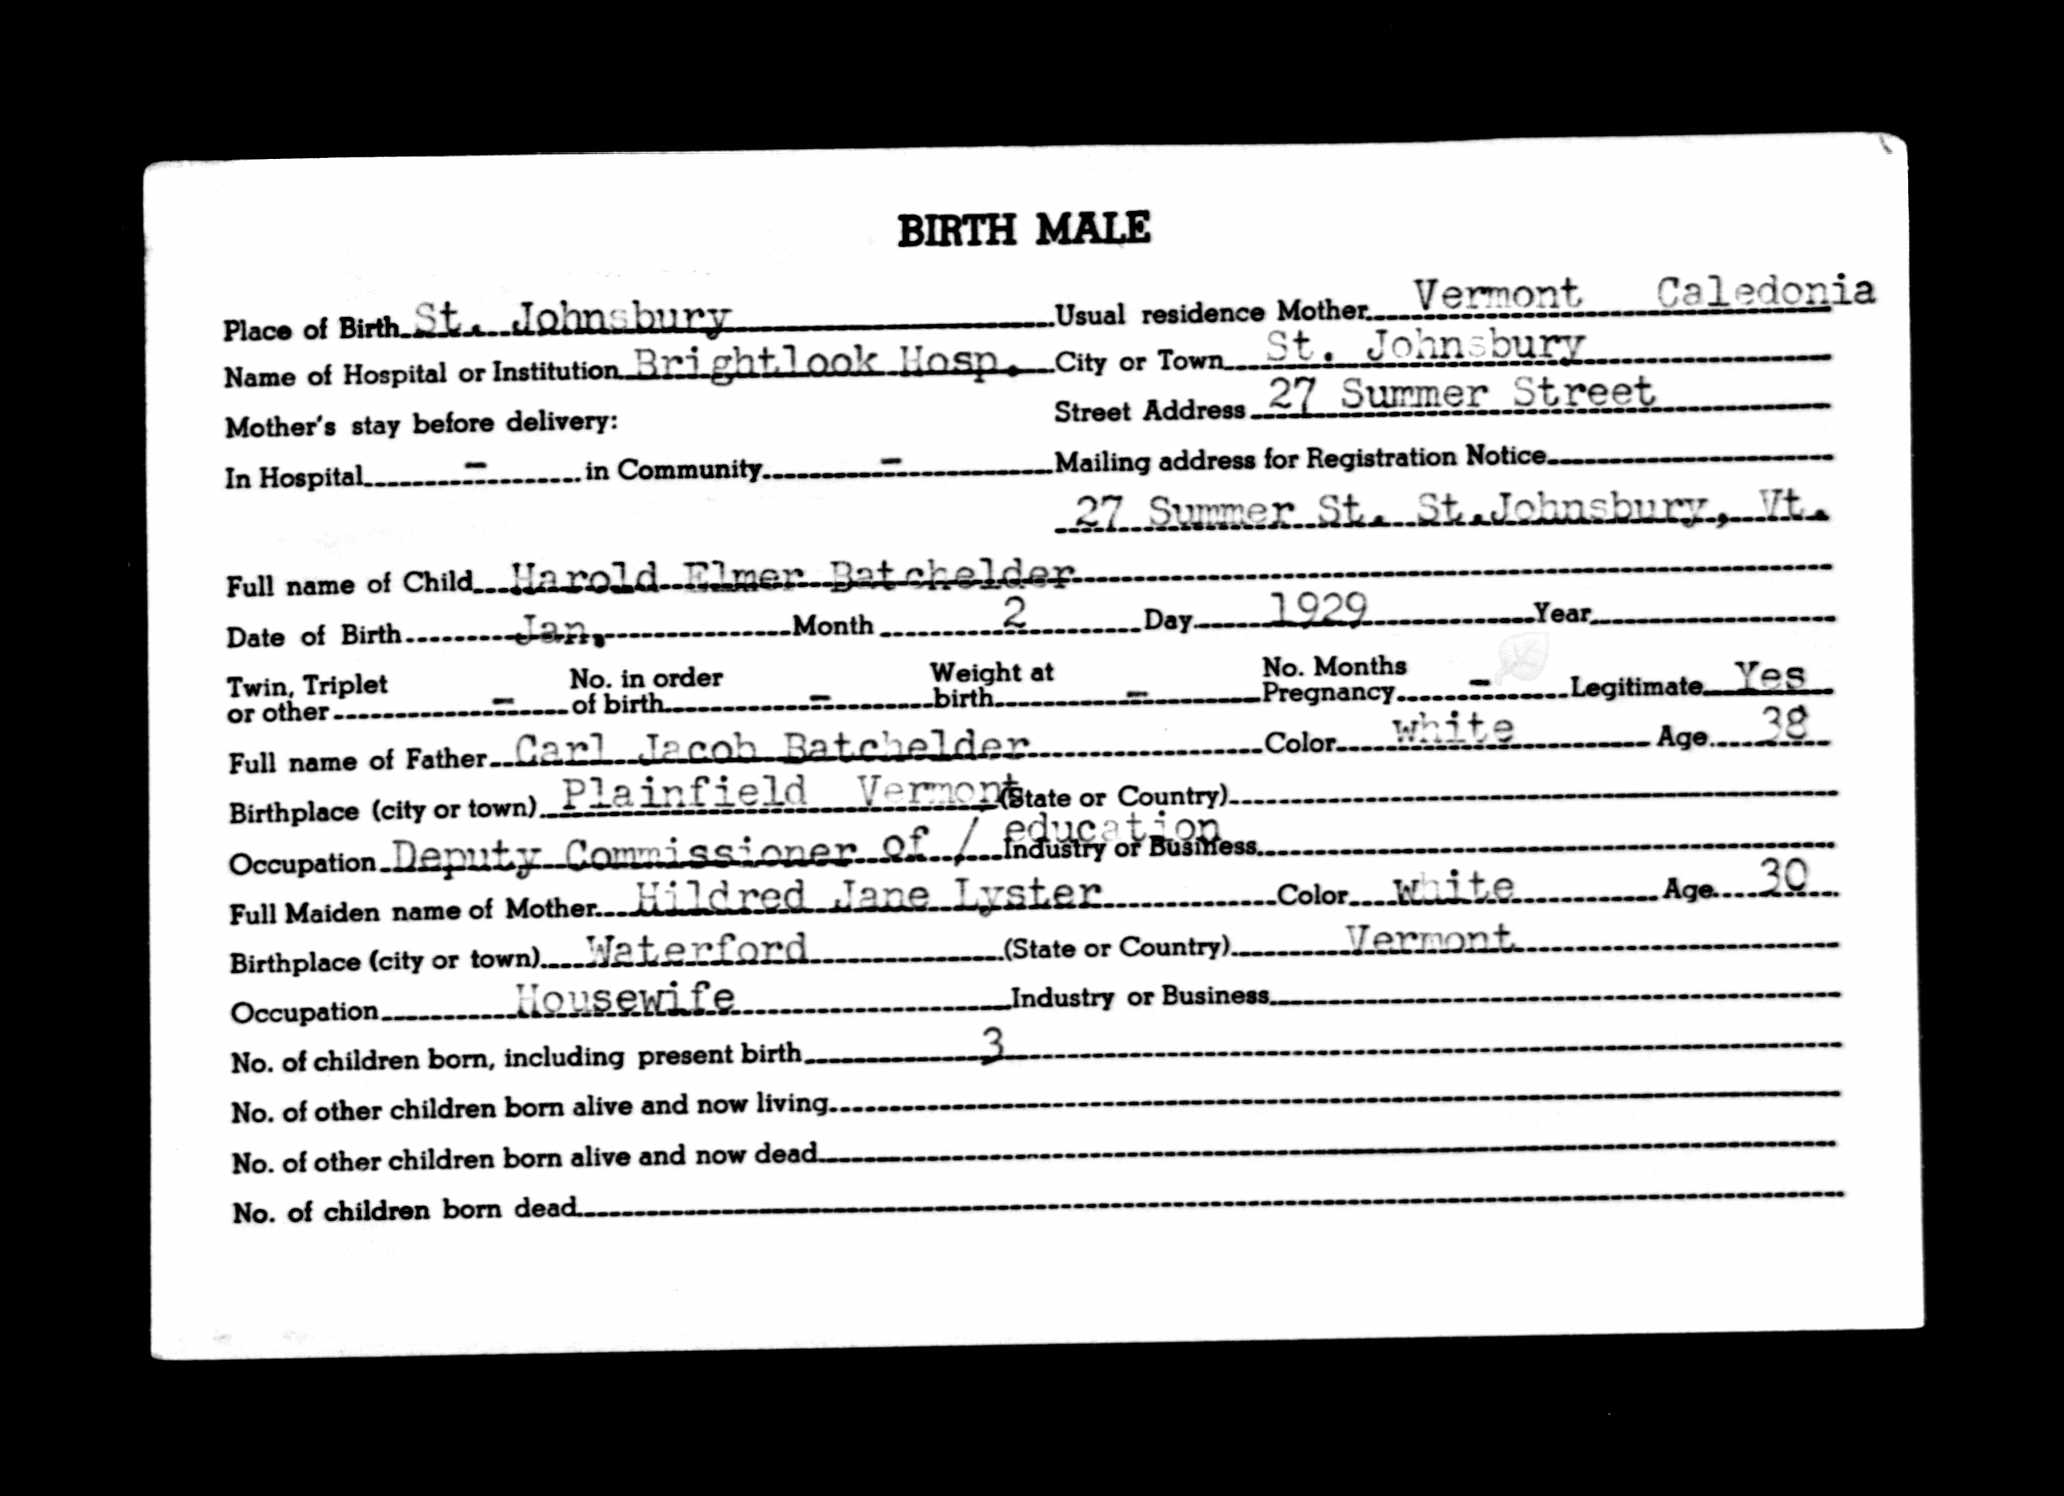 BIRTH MALE
Place of Birth St. Johnsbury Usual residence Mother Vermont Caledonia
Name of Hospital or Institution Brightlook Hosp. City or Town St. Johnsbury
Mother's stay before delivery: Street Address 27 Summer Street
In Hospital - in Community - Mailing address for Registration Notice
27 Summer St. St.Johnsbury, Vt.
Full name of Child Harold Elmer Batchelder
Date of Birth Jan. Month 2 Day 1929 Year
Twin, Triplet No. in order Weight at No. Months
or other - of birth - birth - Pregnancy - Legitimate Yes
Full name of Father Carl Jacob Batchelder Color white Age 38
Birthplace (city or town) Plainfield Vermont (State or Country)
Occupation Deputy Commissioner of / education Industry or Business
Full Maiden name of Mother Hildred Jane Lyster Color white Age 30
Birthplace (city or town) Waterford (State or Country) Vermont
Occupation Housewife Industry or Business
No. of children born, including present birth 3
No. of other children born alive and now living
No. of other children born alive and now dead
No. of children born dead